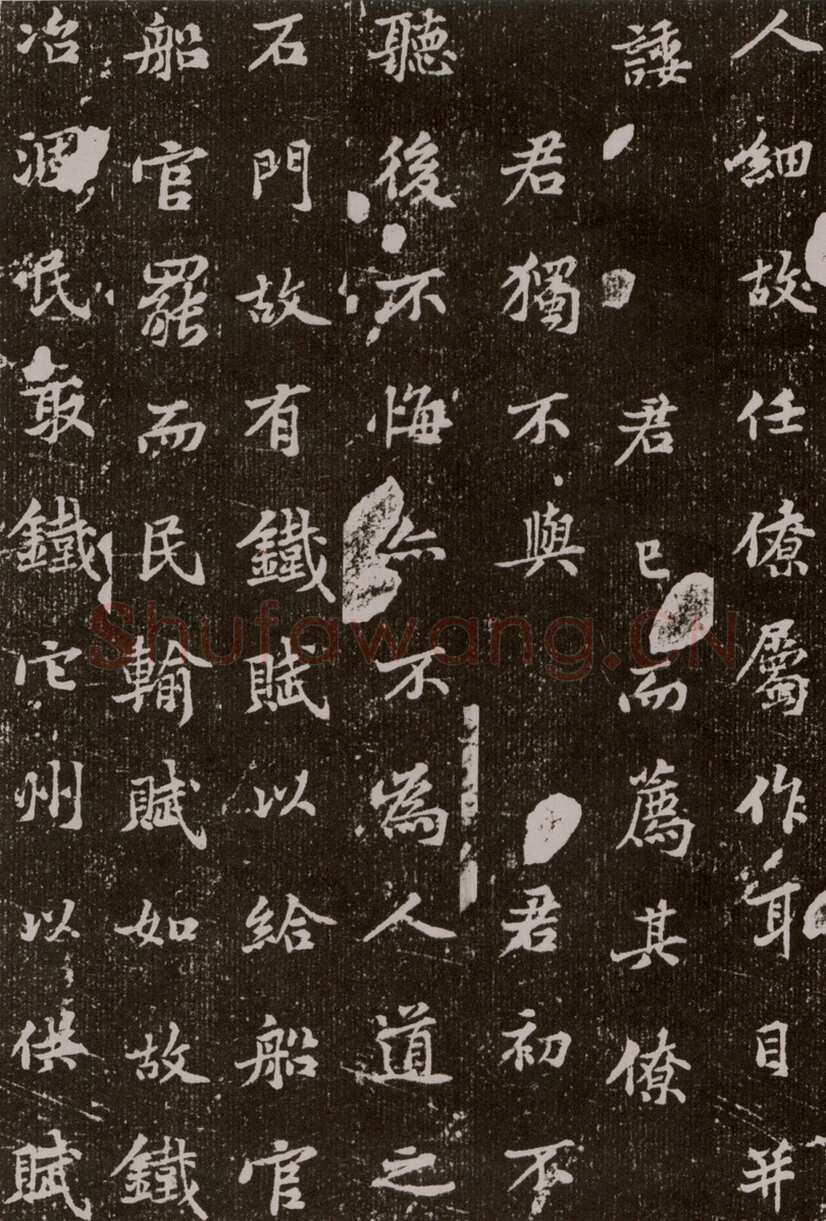 人細故任僚屬作耳目并
諉君已而薦其僚
君獨不與君初不
聽後不悔亦不為人道之
石門故有鐵賦以給船官
船官罷而民輸賦如故鐵
冶涸民取鐵它州以供賦
Shufawang.CN